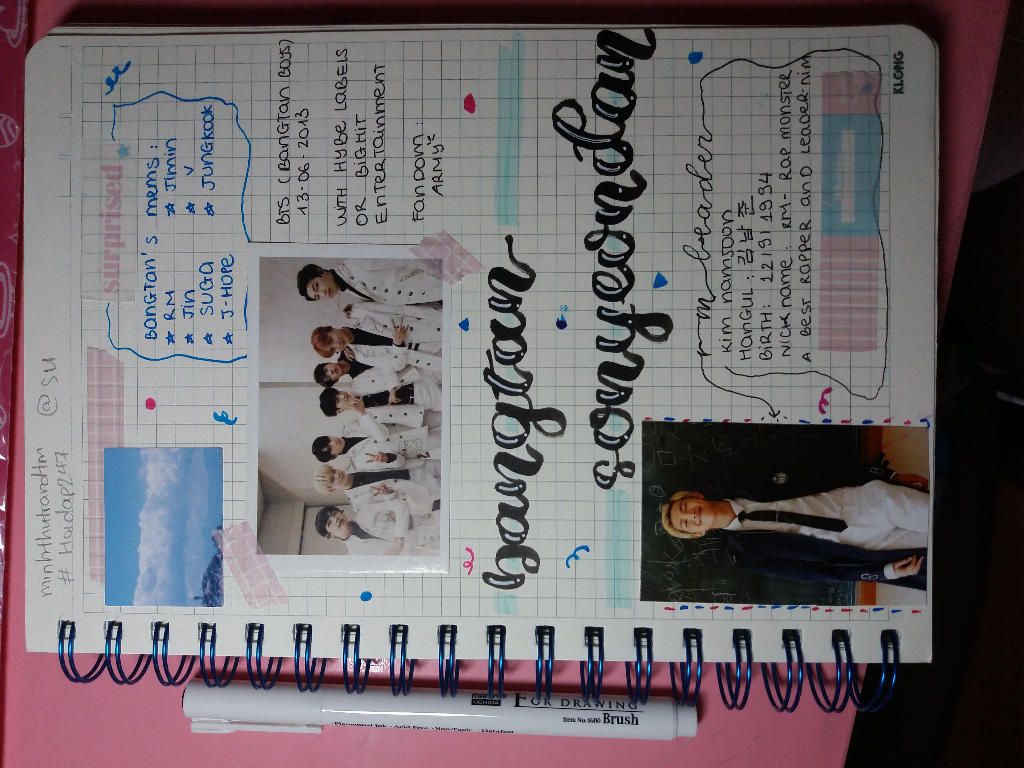 minhthutrandtm @ su
# Hoidap247
surprised
BANGTAN'S mems:
☆ RM ☆ Jimin
☆ Jin ☆ V
☆ SUGA ☆ JUNGKOOK
☆ J-HOPE
BTS (BANGTAN BOYS)
13-06-2013
WITH HYBE LABELS
OR BIGHIT
ENTERTAINMENT
FANDOM:
ARMY
bangtan
sonyeondan
rm leader
Kim namjoon
HANGUL: 김남준
BIRTH: 12/9/1994
NICK name: RM - RAP monster
A BEST RAPPER and LEADER-nim
KLONG
MARVY
UCHIDA
FOR DRAWING
Item No.4600 Brush
Pigmented Ink · Acid Free · Non-Toxic · Lightfast